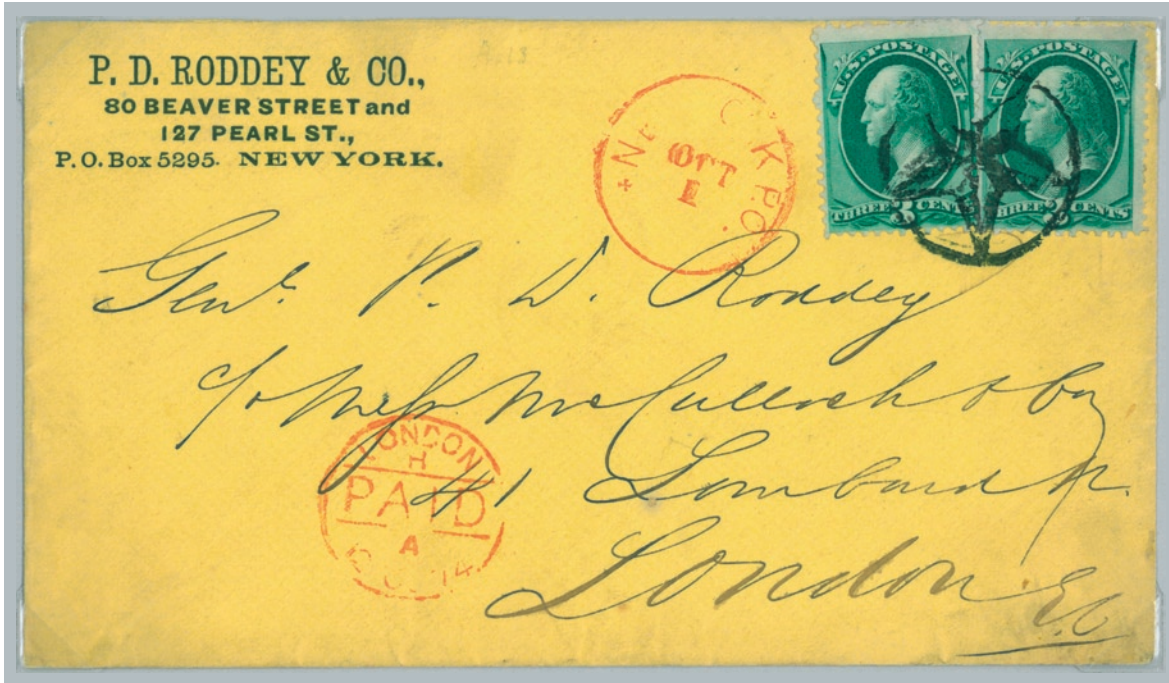 P. D. RODDEY & CO.,
80 BEAVER STREET and
127 PEARL ST.,
P. O. Box 5295. NEW YORK.
U.S. POSTAGE
THREE 3 CENTS
U.S. POSTAGE
THREE 3 CENTS
OCT
1
Genl. P. D. Roddey
c/o Messrs McCulloch & Co
41 Lombard St.
London E.C
LONDON
H
PAID
A